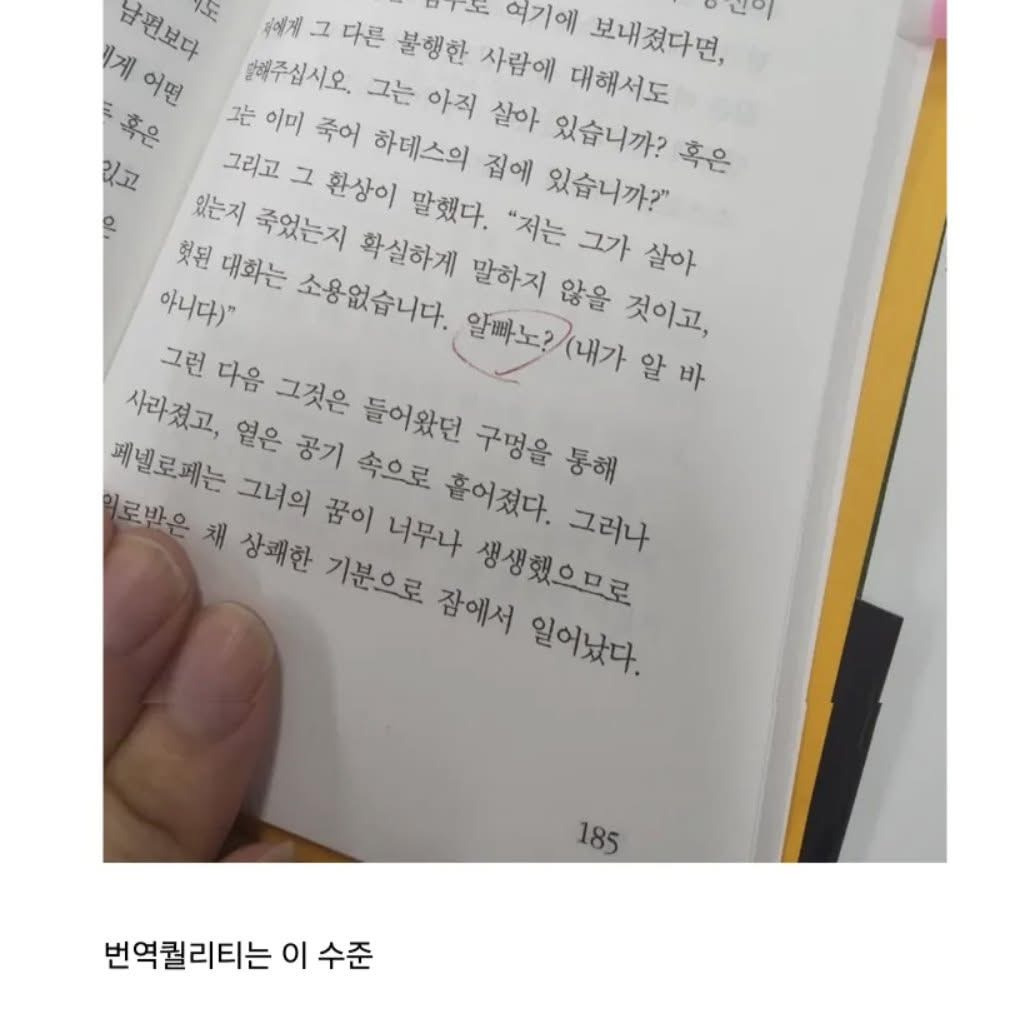 남편보다
에게 어떤
혹은
있고
은
여기에 보내졌다면,
저에게 그 다른 불행한 사람에 대해서도
말해주십시오. 그는 아직 살아 있습니까? 혹은
그는 이미 죽어 하데스의 집에 있습니까?”
그리고 그 환상이 말했다. “저는 그가 살아
있는지 죽었는지 확실하게 말하지 않을 것이고,
헛된 대화는 소용없습니다. 알빠노? (내가 알 바
아니다)”
그런 다음 그것은 들어왔던 구멍을 통해
사라졌고, 옅은 공기 속으로 흩어졌다. 그러나
페넬로페는 그녀의 꿈이 너무나 생생했으므로
위로받은 채 상쾌한 기분으로 잠에서 일어났다.
185
번역퀄리티는 이 수준